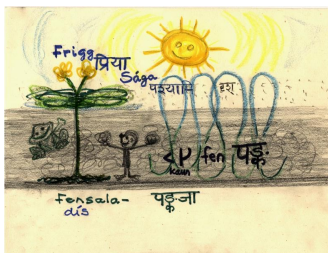 Frigg प्रिया
Sága
पश्यामि दृश्
fen पङ्क
kaun
Fensala-
dís
पङ्क-जा